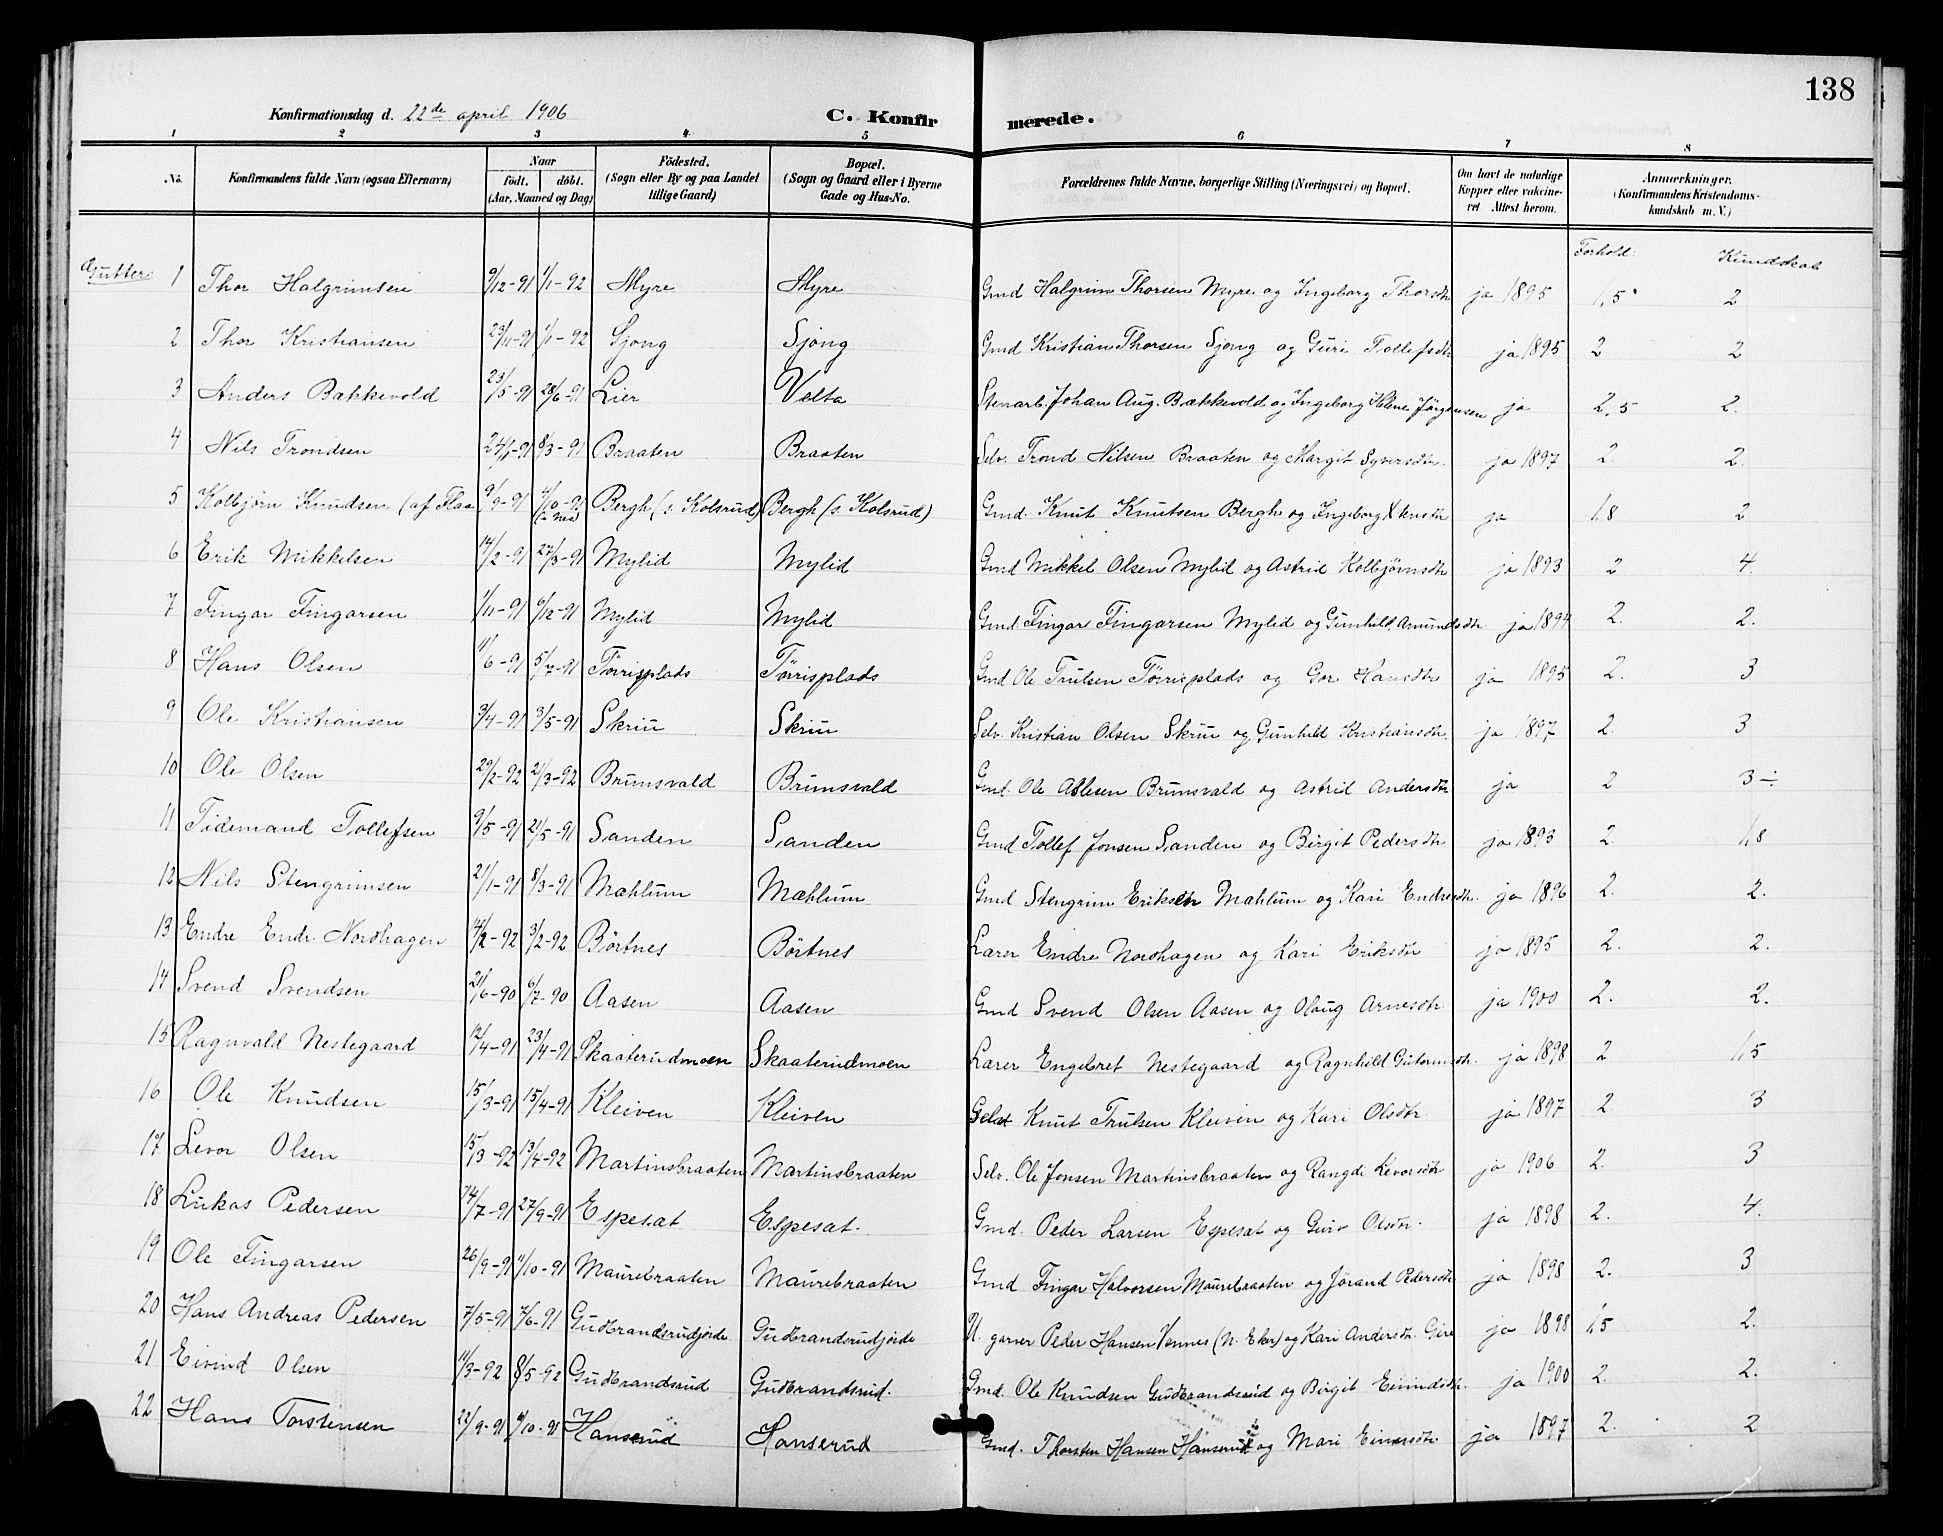 138
Konfirmationsdag d. 22de april 1906 C. Konfirmerede.
1 2 3 4 5 6 7 8
No. Konfirmandens fulde Navn (ogsaa Efternavn) Naar födt. döbt. (Aar, Maaned og Dag) Födested. (Sogn eller By og paa Landet tillige Gaard) Bopæl. (Sogn og Gaard eller i Byerne Gade og Hus-No. Forældrenes fulde Navne, borgerlige Stilling (Næringsvei) og Bopæl. Om havt de naturlige Kopper eller vakcineret Attest herom. Anmærkninger. (Konfirmandens Kristendomskundskab m. V.)
Forhold. Kundskab
Gutter 1 Thor Halgrimsen 9/12-91 1/1-92 Myre Myre Gmd Halgrim Thorsen Myre og Ingeborg Thorsdtr ja 1895 1,5 2
2 Thor Kristiansen 23/11-91 1/1-92 Sjong Sjong Gmd Kristian Thorsen Sjong og Guri Tollefsdtr ja 1895 2 2
3 Anders Bækkevold 23/5-91 28/6-91 Lier Velta Stenarb. Johan Aug. Bækkevold og Ingeborg Helene Jørgensen ja 2,5 2.
4 Nils Trondsen 24/1-91 8/3-91 Braaten Braaten Selv. Trond Nilsen Braaten og Margit Syversdtr. ja 1897 2. 2.
5 Kolbjørn Knudsen (af Flaa 9/9-91 4/10-91 i Nes Bergh (s. Kolsrud) Bergh (s. Kolsrud) Gmd. Knut Knutsen Bergh og Ingeborg Knsdtr ja 1,8 2
6 Erik Mikkelsen 14/2-91 27/3-91 Mylid Mylid Gmd Mikkel Olsen Mylid og Astrid Kolbjörnsdtr ja 1893 2 4.
7 Fingar Fingarsen 1/11-91 6/12-91 Mylid Mylid Gmd Fingar Fingarsen Mylid og Gunhild Amundsdtr. ja 1894 2. 2.
8 Hans Olsen 11/6-91 5/7-91 Törrisplads Törrisplads Gmd Ole Trulsen Törrisplads og Gor Hansdtr ja 1895 2. 3
9 Ole Kristiansen 3/4-91 3/5-91 Skriu Skriu Selv. Kristian Olsen Skriu og Gunhild Kristiansdtr. ja 1897 2. 3
10 Ole Olsen 29/2-92 21/3-92 Brunsvald Brunsvald Gmd. Ole Brunsvald og Astrid Andersdtr ja 2 3÷
11 Tidemand Tollefsen 9/5-91 21/5-91 Sanden Sanden Gmd Tollef Jonsen Sanden og Birgit Pedersdtr ja 1893 2. 1,8
12 Nils Stengrimsen 21/1-91 8/3-91 Mæhlum Mæhlum Gmd Stengrim Eriksen Mæhlum og Kari Endresdtr. ja 1896 2. 2.
13 Endre Endr. Nordhagen 14/2-92 3/2-92 Börtnes Börtnes Lærer Endre Nordhagen og Kari Eriksdtr ja 1895 2. 2.
14 Svend Svendsen 21/6-90 6/7-90 Aasen Aasen Gmd Svend Olsen Aasen og Olaug Arnesdtr. ja 1900 2. 2.
15 Ragnvald Nestegaard 12/4-91 23/4-91 Skaaterudmoen Skaaterudmoen Lærer Engebret Nestegaard og Ragnhild Gutormsdtr. ja 1898 2 1,5
16 Ole Knudsen 15/3-91 15/4-91 Kleiven Kleiven Knut Trulsen Kleiven og Kari Olsdtr. ja 1897 2. 3
17 Levor Olsen 15/3-92 13/4-92 Martinsbraaten Martinsbraaten Selv. Ole Jonsen Martinsbraaten og Rangdi Levorsdtr ja 1906 2. 3
18 Lukas Pedersen 14/7-91 27/9-91 Espesæt Espesæt. Gmd. Peder Larsen Espesæt og Guro Olsdtr. ja 1898 2. 4.
19 Ole Fingarsen 26/9-91 11/10-91 Maurebraaten Maurebraaten Gmd Fingar Halvorsen Maurebraaten og Jörand Pedersdtr ja 1898 2. 3
20 Hans Andreas Pedersen 7/5-91 7/6-91 Gudbrandsrudjorde Gudbrandsrudjorde U. garver Peder Hansen Vennes (N. Eker) og Kari Andersdtr. Gire ja 1898 1,5 2.
21 Eivind Olsen 11/3-92 8/5-92 Gudbrandsrud Gudbrandsrud. Gmd. Ole Knudsen Gudbrandsrud og Birgit Eivindsdtr. ja 1900 2. 2.
22 Hans Torstensen 22/9-91 4/10-91 Hanserud Hanserud Gmd. Thorsten Hansen Hanserud og Mari Einarsdtr ja 1897 2. 2